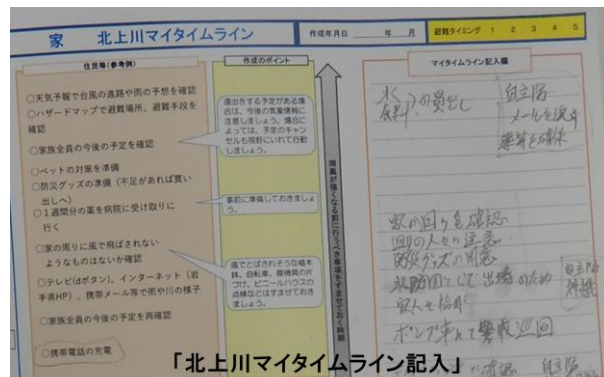 家 北上川マイタイムライン
作成年月日 年 月
避難タイミング 1 2 3 4 5
住民等(参考例)
○天気予報で台風の進路や雨の予想を確認
○ハザードマップで避難場所、避難手段を
確認
○家族全員の今後の予定を確認
○ペットの対策を準備
○防災グッズの準備(不足があれば買い
出しへ)
○1週間分の薬を病院に受け取りに
行く
○家の周りに風で飛ばされない
ようなものはないか確認
○テレビ(dボタン)、インターネット(岩
手県HP)、携帯メール等で雨や川の様子
○家族全員の今後の予定を再確認
○携帯電話の充電
作成のポイント
遠出をする予定がある場
合は、今後の気象情報に
注意しましょう。場合に
よっては、予定のキャン
セルも視野にいれて行動
しましょう。
事前に準備しておきましょ
う。
風でとばされそうな植木
鉢、自転車、農機具の片
づけ、ビニールハウスの
点検などはすませておき
ましょう。
雨風が強くなる前に行うべき事項をすませておく時期
マイタイムライン記入欄
水
食料の買出し
自主防
メールを流す
家の回りを確認
回りの人々に注意
防災グッズの用意
消防団として出場のため
ポンプ車にて警戒巡回
確認
「北上川マイタイムライン記入」